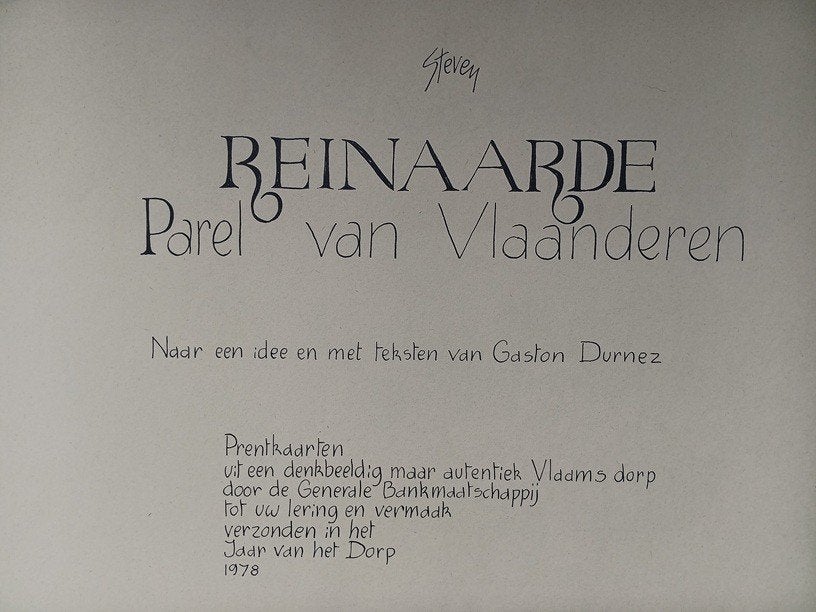 Steven
REINAARDE
Parel van Vlaanderen
Naar een idee en met teksten van Gaston Durnez
Prentkaarten
uit een denkbeeldig maar autentiek Vlaams dorp
door de Generale Bankmaatschappij
tot uw lering en vermaak
verzonden in het
Jaar van het Dorp
1978